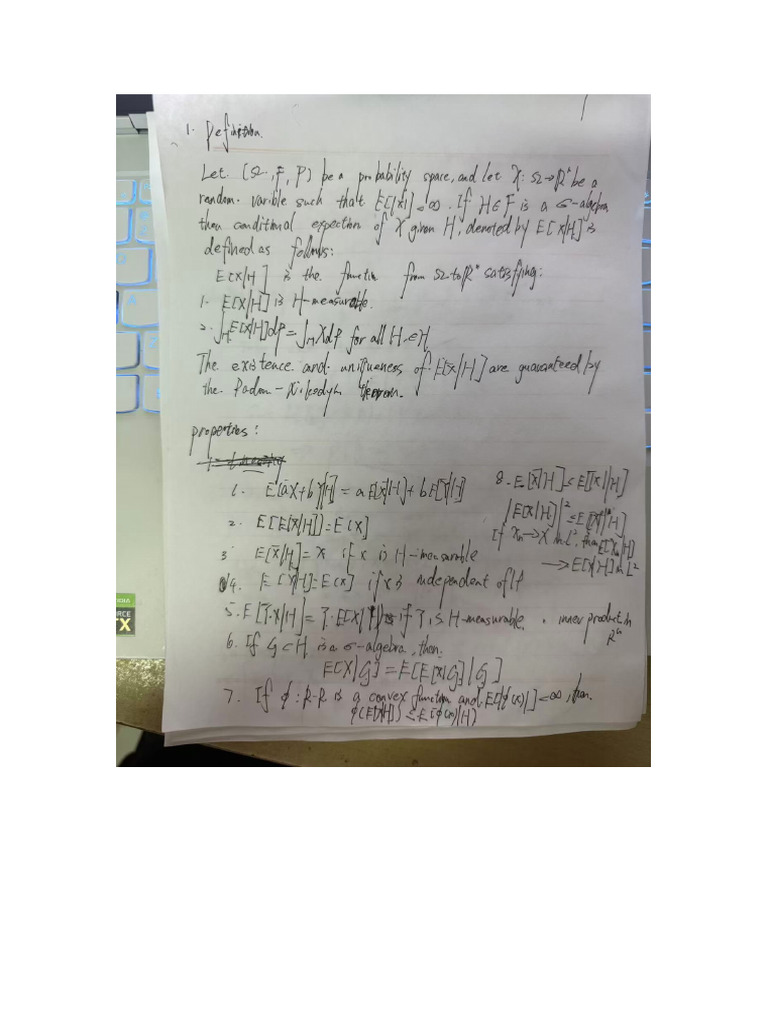 1. Definition.
Let (Ω, F, P) be a probability space, and let X: Ω→Rⁿ be a
random varible such that E[|X|] < ∞. If H ⊂ F is a σ-algebra
then conditional expection of X given H, denoted by E[X|H] is
defined as follows:
E[X|H] is the function from Ω to Rⁿ satisfying:
1. E[X|H] is H-measurable.
2. ∫_H E[X|H]dP = ∫_H XdP for all H ∈ H
The existence and uniqueness of E[X|H] are guaranteed by
the Radon-Nikodym theorem.
properties:
1. E[aX+bY|H] = aE[X|H] + bE[Y|H]
2. E[E[X|H]] = E[X]
3 E[X|H] = X if X is H-measurable
4. E[X|H] = E[X] if X is independent of H
5. E[Y·X|H] = Y·E[X|H] if Y is H-measurable. · inner product in Rⁿ
6. If G ⊂ H is a σ-algebra, then:
E[X|G] = E[E[X|G]|G]
7. If φ: R-R is a convex function and E[|φ(x)|] < ∞, then
φ(E[X|H]) ≤ E[φ(x)|H]
8. E[X|H] ≤ E[|X||H]
|E[X|H]|² ≤ E[|X|²|H]
If Xₙ → X in L², then E[Xₙ|H]
→ E[X|H] in L²